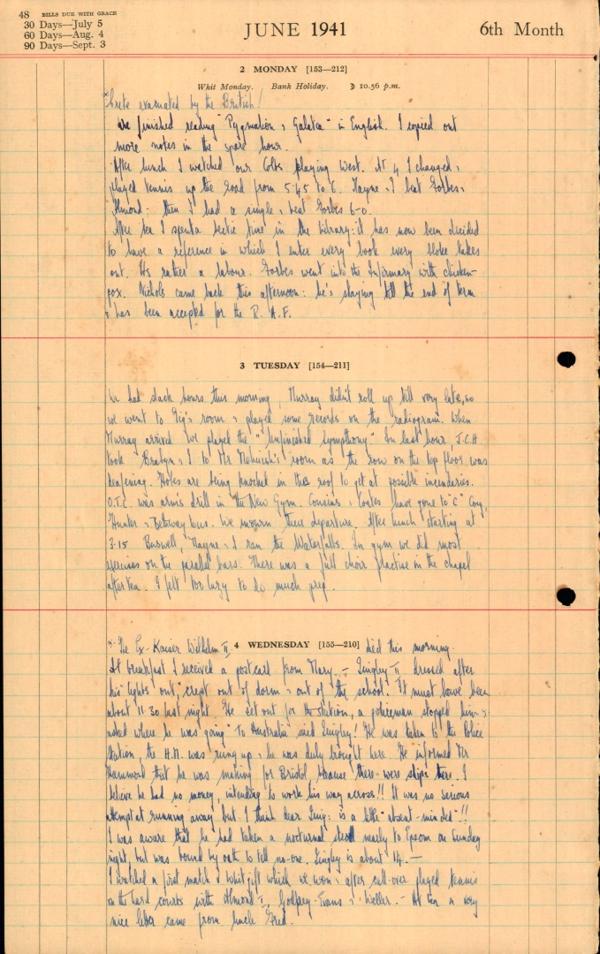 48 BILLS DUE WITH GRACE
30 Days—July 5
60 Days—Aug. 4
90 Days—Sept. 3
JUNE 1941
6th Month
2 MONDAY [153—212]
Whit Monday. Bank Holiday. ☽ 10.56 p.m.
Crete evacuated by the British!
We finished reading "Pygmalion & Galatea" in English. I copied out
more notes in the spare hour.
After lunch I watched our Colts playing West. At 4 I changed &
played tennis up the road from 5.45 to 6. Hayne & I beat Forbes &
Almond: then I had a single & beat Forbes 6-0.
After tea I spent a hectic time in the Library: it has now been decided
to have a reference in which I enter every book every bloke takes
out. It's rather a labour. Forbes went into the Infirmary with chicken-
pox. Nichols came back this afternoon: he's staying till the end of term
& has been accepted for the R.A.F.
3 TUESDAY [154—211]
We had slack hours this morning. Murray didn't roll up till very late, so
we went to room & played some records on the radiogram. When
Murray arrived we played the "Unfinished Symphony". In last hour, J.C.H
took & I to Mr room as the row on the top floor was
deafening. Holes are being knocked in the roof to get at possible incendiaries.
O.T.C. was arms drill in the New Gym. Cousins & Coates have gone to "C" Coy,
Hunter & bus. We mourn their departure. After lunch starting at
3.15 Buswell, Hayne & I ran the Waterfalls. In gym we did most
exercises on the parallel bars. There was a full choir practice in the chapel
after tea. I felt too lazy to do much prep.
4 WEDNESDAY [155—210]
The Ex-Kaiser Wilhelm II died this morning.
At breakfast I received a postcard from Mary. – Lingley II dressed after
his lights "out" crept out of dorm & out of the school. It must have been
about 11.30 last night. He set out for the station, a policeman stopped him &
asked where he was going "To Australia" said Lingley! He was taken to the Police
Station, the H.M. was rung up & he was duly brought here. He informed Mr
Hammond that he was making for Bristol because there were ships there. I
believe he had no money, intending to work his way across!! It was no serious
attempt at running away but I think dear Ling: is a little "absent-minded"!!
I was aware that he had taken a nocturnal stroll nearly to Epsom on Sunday
night, but was bound by oath to tell no-one. Lingley is about 14. —
I watched a first match v Whitgift which we won & after call-over played tennis
on the hard courts with Almond I, Godfrey-Evans & Weller. – At tea a very
nice letter came from Uncle Fred.